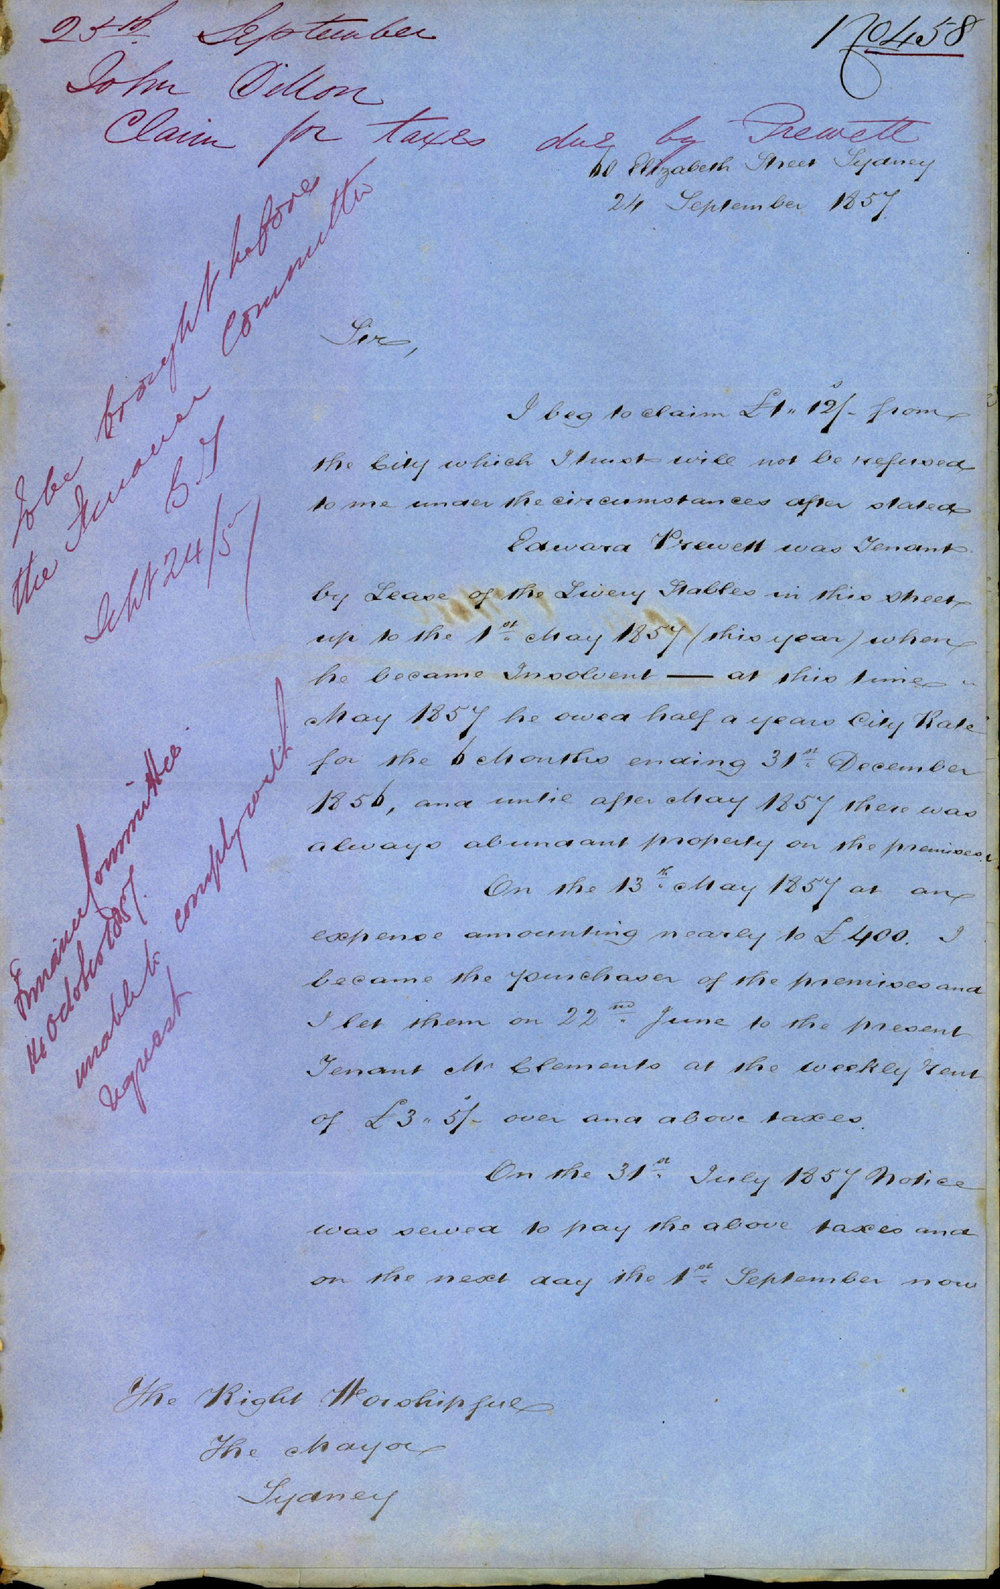 No 458
25th September
John Dillon
Claim for taxes due by Prewett
60 Elizabeth Street Sydney
24 September 1857.
To be brought before
the Finance Committee
Sept 24/57
Sir,
I beg to claim £1 " 12/- from
the City which I trust will not be refused
to me under the circumstances after stated
Edward Prewett was Tenant
by Lease of the Livery Stables in this street
up to the 1st May 1857 (this year) when
he became Insolvent — at this time
May 1857 he owed half a years City Rate
for the 6 Months ending 31st December
1856, and until after May 1857 there was
always abundant property on the premises.
On the 13th May 1857 at an
expense amounting nearly to £400. I
became the purchaser of the premises and
I let them on 22nd June to the present
Tenant Mr Clements at the weekly rent
of £3 " 5/- over and above taxes.
On the 31st July 1857 Notice
was served to pay the above taxes and
on the next day the 1st September now
Finance Committee
14 October 1857.
unable to comply with
request
The Right Worshipful
The Mayor
Sydney